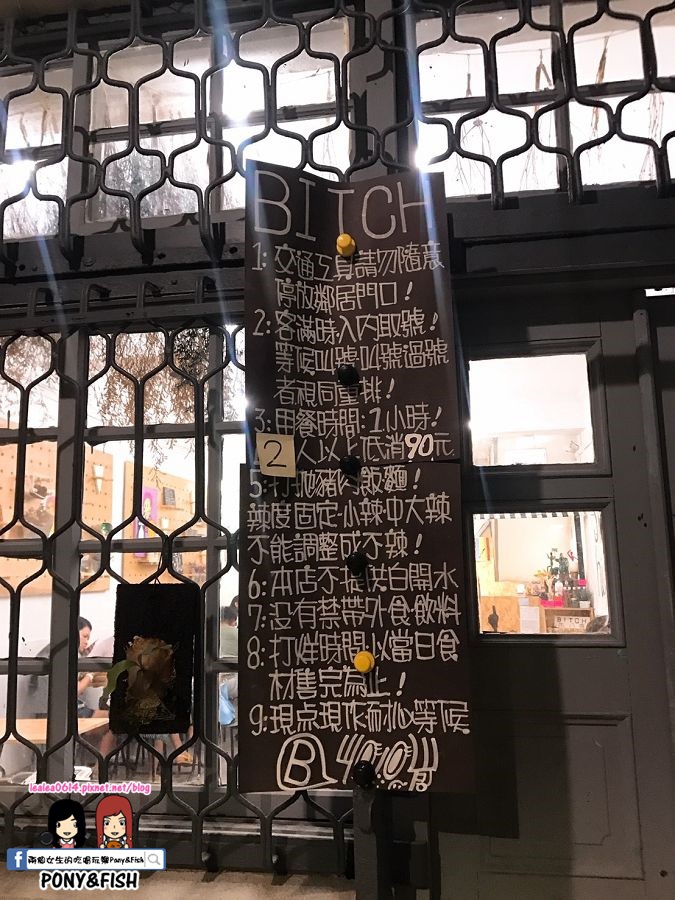 BITCH
1:交通工具請勿隨意
停放鄰居門口!
2:客滿時入內取號!
等候叫號叫號過號
者視同重排!
3:用餐時間:1小時!
2人以上低消90元
5:打拋豬肉飯麵!
辣度固定·小辣·中大辣
不能調整成不辣!
6:本店不提供白開水
7:沒有禁帶外食·飲料
8:打烊時間以當日食
材售完為止!
9:現点現作耐心等候
B
BITCH
lealea0614.pixnet.net/blog
兩個女生的吃喝玩樂Pony&Fish
PONY&FISH